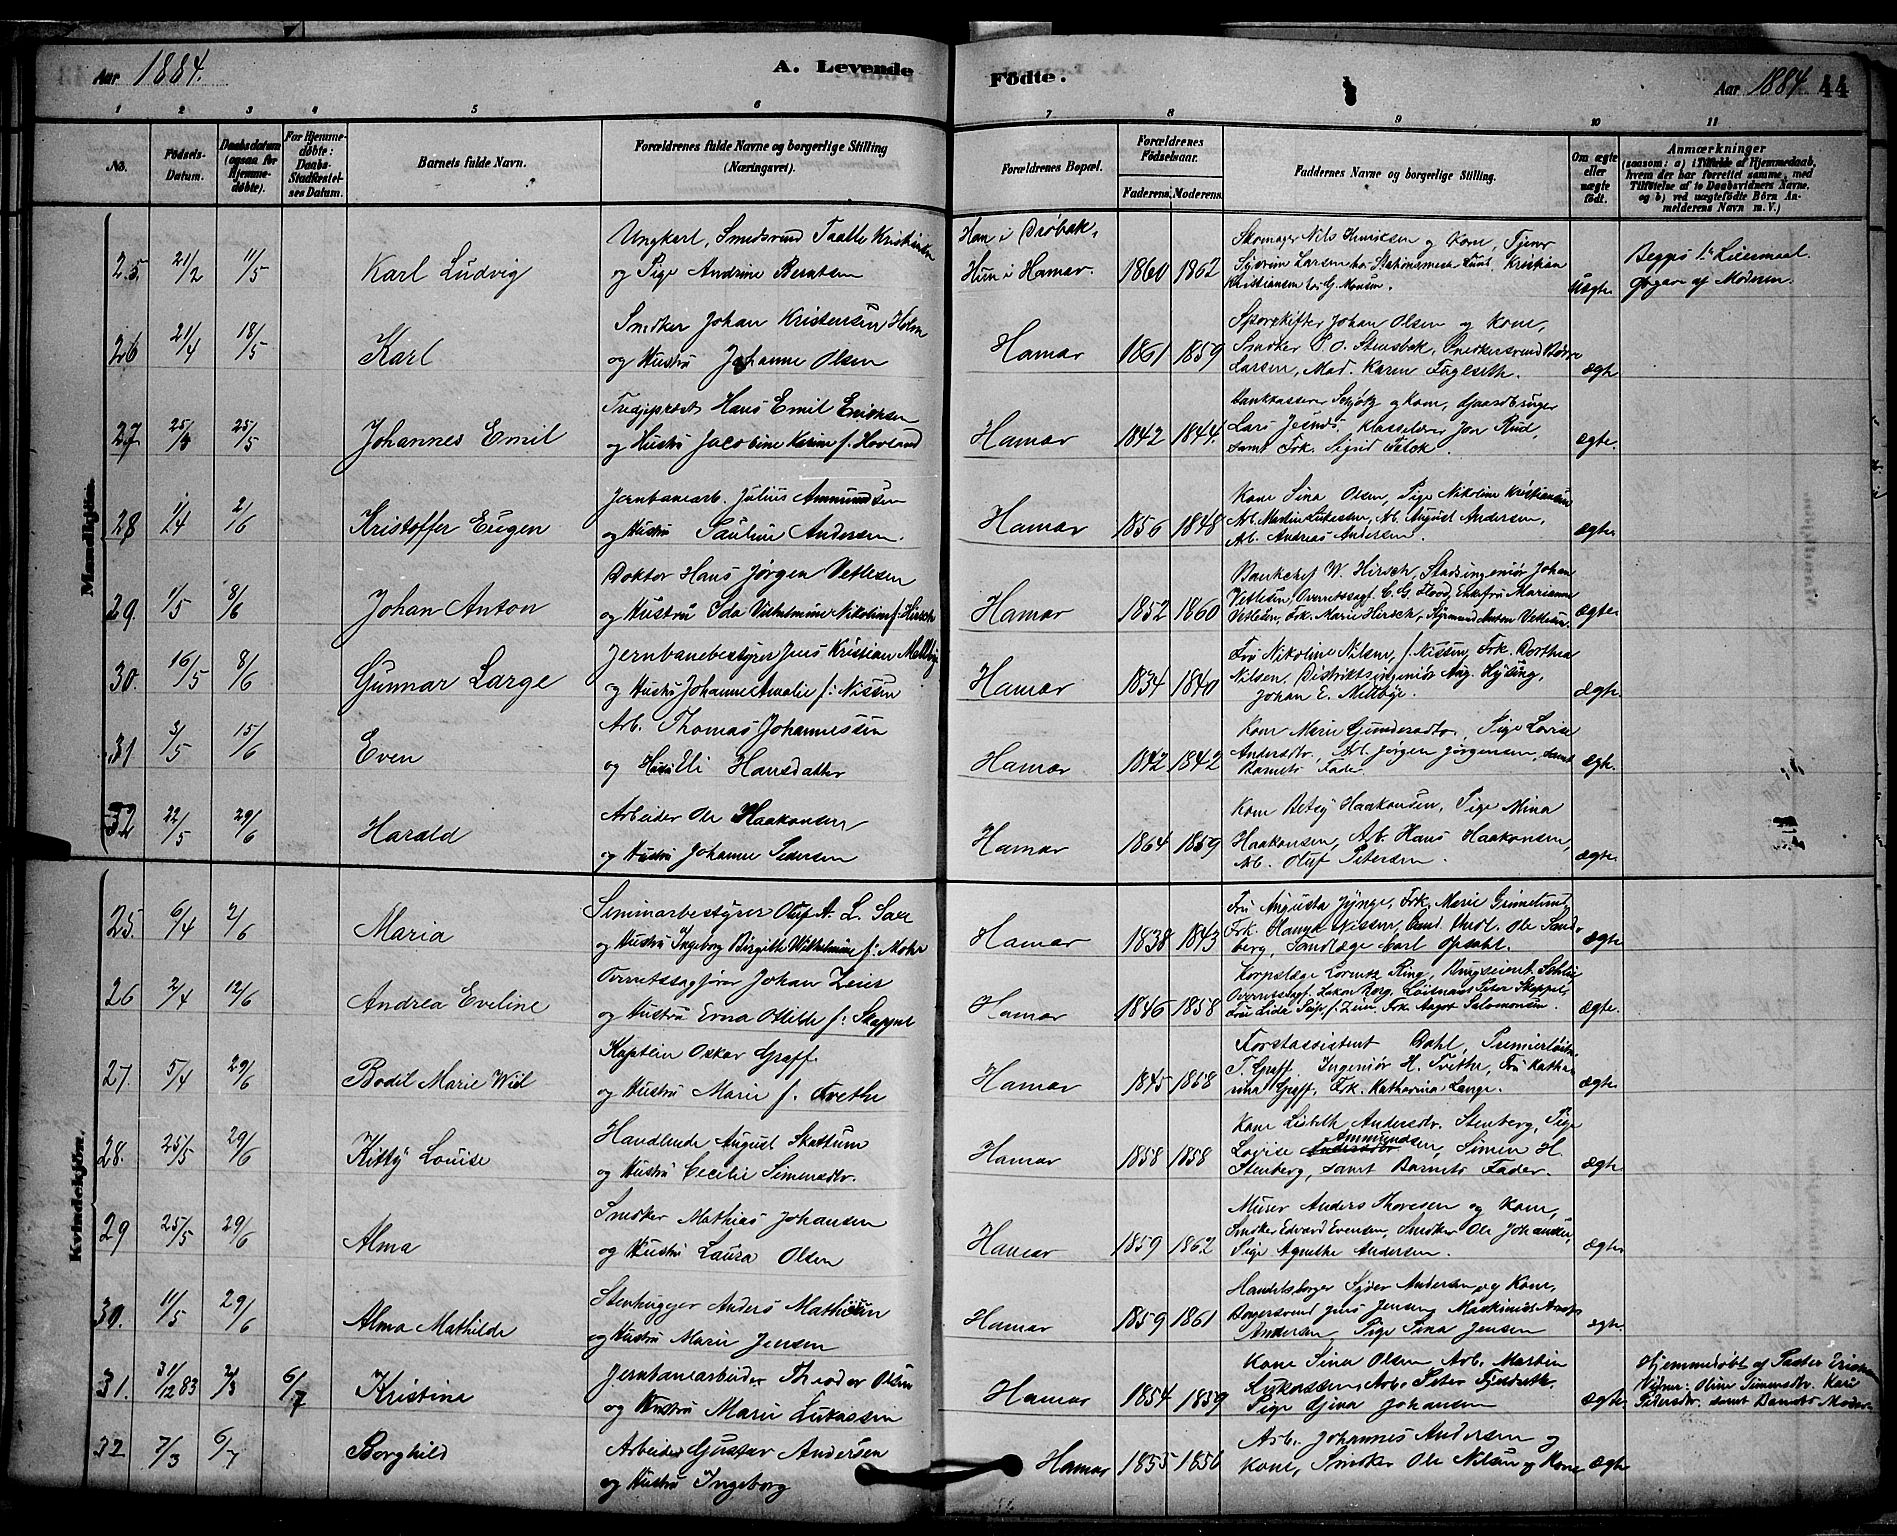 Aar 1884.
A. Levende
Födte.
Aar 1884
44
1 2 3 4 5 6 7 8 9 10 11
No.
Födsels-Datum.
Daabsdatum (ogsaa for Hjemme-döbte).
For Hjemme-döbte: Daabs-Stadfæstel-ses Datum.
Barnets fulde Navn.
Forældrenes fulde Navne og borgerlige Stilling (Næringsvei).
Forældrenes Bopæl.
Forældrenes Födselsaar.
Faderens. Moderens.
Faddernes Navne og borgerlige Stilling.
Om ægte eller uægte födt.
Anmærkninger
(saasom: a) i Tilfælde af Hjemmedaab, hvem der har forrettet samme, med Tilföielse af to Daabsvidners Navne, og b) ved uægtefödte Börn An-melderens Navn m. V.)
Mandkjön.
25. 21/2 11/5 Karl Ludvig
Ungkarl, Smedsvend
og Pige Andrine Berntsen
Han i Drøbak,
Hun i Hamar. 1860 1862
Skomager Nils Henriksen og Kone, Tjener
Larsen hos Stationsmester Kristian
Kristiansen hos G. Monsen.
Uægte
Begges 1ste Leiermaal.
Opgave af Moderen.
26 21/4 18/5 Karl
Snedker Johan Kristensen Holm
og Hustru Johanne Olsen
Hamar 1861 1859
Sporskifter Johan Olsen og Kone,
Snedker P. O. Stensbak, Snedkersvend
Larsen, Mad. Karen Fugleseth.
ægte
27 25/3 25/5 Johannes Emil
Tredjeprest Hans Emil Ericksen
og Hustru Jacobine Karine f. Hovland
Hamar 1842 1844.
Bankkasserer Schjøtz og Kone, Gaardbruger
Lars Jesnes, Klasselærer Jon Rud,
samt Frk. Sigrid
ægte.
28 1/4 2/6 Kristoffer Eugen
Jernbanearb. Julius Ammundsen
og Hustru Pauline Andersen.
Hamar 1856 1848
Kone Sina Olsen, Pige Nikoline Kristiansen
Arb. Martin Lukassen, Ab. August Andersen,
Ab. Andreas Andersen.
ægte
29. 1/5 8/6 Johan Anton
Doktor Hans Jørgen Vetlesen
og Hustru Ida Vilhelmine Nikoline f. Hirsch
Hamar 1852 1860
Bankchef W. Hirsch, Stadsingeniør Johan
Vetlesen, Overretssagf. C. G. Flood, Enkefru Marianne
Vetlesen, Frk. Marie Hirsch, Styrmand Anton Vetlesen.
ægte
30. 16/5 8/6 Gunnar Large
Jernbanebestyrer Jens Kristian Mellbye
og Hustru Johanne Amalie f: Nissen
Hamar 1834 1840
Fru Nikoline Nilsen, f. Nissen, Frk. Dorthea
Nilsen, Distriktsingeniør Aug. Hysing,
Johan E. Mellbye.
ægte
31 3/5 15/6 Even
Arb. Thomas Johannessen
og Hustru Eli Hansdatter
Hamar 1842 1842
Kone Marie Gundersdtr, Pige Lovise
Andersdtr. Ab. Jørgen Jørgensen, samt
Barnets Fader.
ægte.
32 22/5 29/6 Harald
Arbeider Ole Haakonsen
og Hustru Johanne Pedersen
Hamar 1864 1859
Kone Betsy Haakonsen, Pige Mina
Haakonsen, Ab. Hans Haakonsen,
Ab. Oluf Petersen.
ægte
Kvindekjön.
25. 6/4 2/6 Maria
Seminarbestyrer Oluf A. L. Saxe
og Hustru Ingeborg Birgitte Wilhelmine f: Mohr
Hamar 1838 1843
Fru Augusta Jynge, Frk. Marie Grimelund,
Frk. Nissen, Cand. theol. Ole Sand-
berg, Tandlæge Carl Opsahl.
ægte
26 2/4 12/6 Andrea Eveline
Overretssagfører Johan Zeier
og Hustru Erna Othilde f: Skappel
Hamar 1846 1858
Korpslæge Lorentz Ring, Brugseier
Overretssagf. Hakon Borg, Løitnant Peter Skappel,
Fru Lida f. Zeier, Frk. Aagot Salomonsen.
ægte.
27. 5/4 29/6 Bodil Marie Wiel
Kaptein Oskar Graff
og Hustru Marie f. Tvethe
Hamar 1845 1858
Forstassistent Dahl, Premierløitn.
T. Graff, Ingeniør H. Tvethe, Fru Katha-
rina Graff, Frk. Katharina Lange.
ægte
28. 25/5 29/6 Kitty Louise
Handlende August Skattum
og Hustru Cecilie Simensdtr.
Hamar 1858 1858
Kone Lisbeth Andersdtr. Stenberg, Pige
Lovise Andersdtr Ammundsen, Simen H.
Stenberg, samt Barnets Fader.
ægte
29 25/5 29/6 Alma
Snedker Mathias Johansen
og Hustru Laura Olsen
Hamar 1859 1862
Murer Anders Thoresen og Kone,
Snedker Edvard Evensen, Snedker Ole Johansen,
Pige Agnethe Andersen.
ægte
30. 11/5 29/6 Alma Mathilde
Stenhugger Anders Mathisen
og Hustru Marie Jensen
Hamar 1859 1861
Handelsborger Syver Andersen og Kone,
Bagersvend Jens Jensen, Maskinist
Andersen, Pige Sina Jensen
ægte.
31. 31/12 83 2/3 6/7 Kristine
Jernbanearbeider Theodor Olsen
og Hustru Marie Lukassen
Hamar 1854 1859
Kone Sina Olsen, Arb. Martin
Lukassen, Arb. Peter
Pige Gina Johansen
ægte
Hjemmedøbt af Pastor Ericksen
Vidner: Oline Simensdtr. Kari
Petersdtr. samt Barnets Moder
32 7/3 6/7 Borghild
Arbeider Gustav Andersen
og Hustru Ingeborg
Hamar 1855 1856
Arb. Johannes Andersen og
Kone, Snedker Ole Nilsen og Kone
ægte